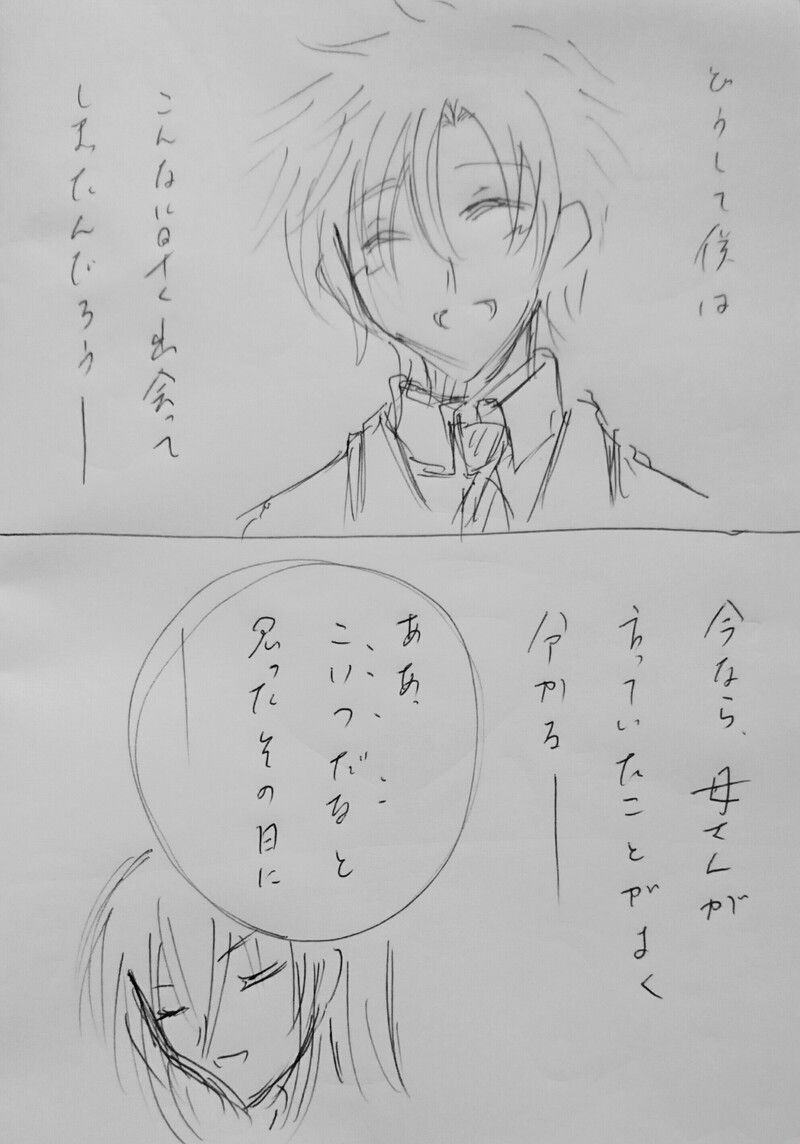 どうして僕は
こんなに早く出会って
しまったんだろう―
今なら、母さんが
言っていたことがよく
分かる―
ああ、
こいつだなと
思ったその日に
―